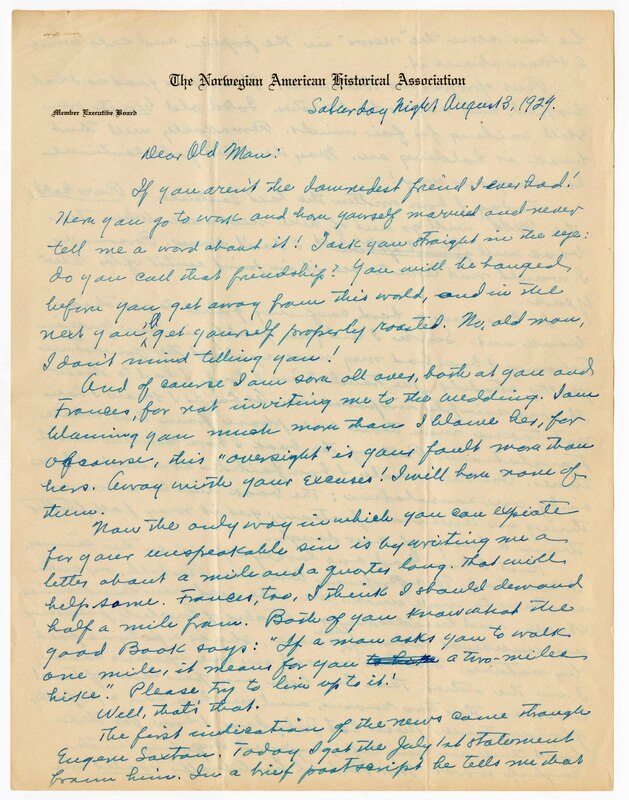 The Norwegian American Historical Association
Member Executive Board
Saturday Night August 3, 1929.
Dear Old Man:
If you aren't the damnedest friend I ever had!
Here you go to work and have yourself married and never
tell me a word about it! I ask you straight in the eye:
do you call that friendship? You will be hanged
before you get away from this world, and in the
next you'll get yourself properly roasted. No, old man,
I don't mind telling you!
And of course I am sore all over, both at you and
Frances, for not inviting me to the wedding. I am
blaming you much more than I blame her, for
of course, this "oversight" is your fault more than
hers. Away with your excuses! I will have none of
them.
Now the only way in which you can expiate
for your unspeakable sin is by writing me a
letter about a mile and a quarter long. That will
help some. Frances, too, I think I should demand
half a mile from. Both of you know what the
good Book says: "If a man asks you to walk
one mile, it means for you a two-miles
hike". Please try to live up to it!
Well, that's that.
The first indication of the news came through
Eugene Saxton. Today I got the July 1st statement
from him. In a brief postscript he tells me that